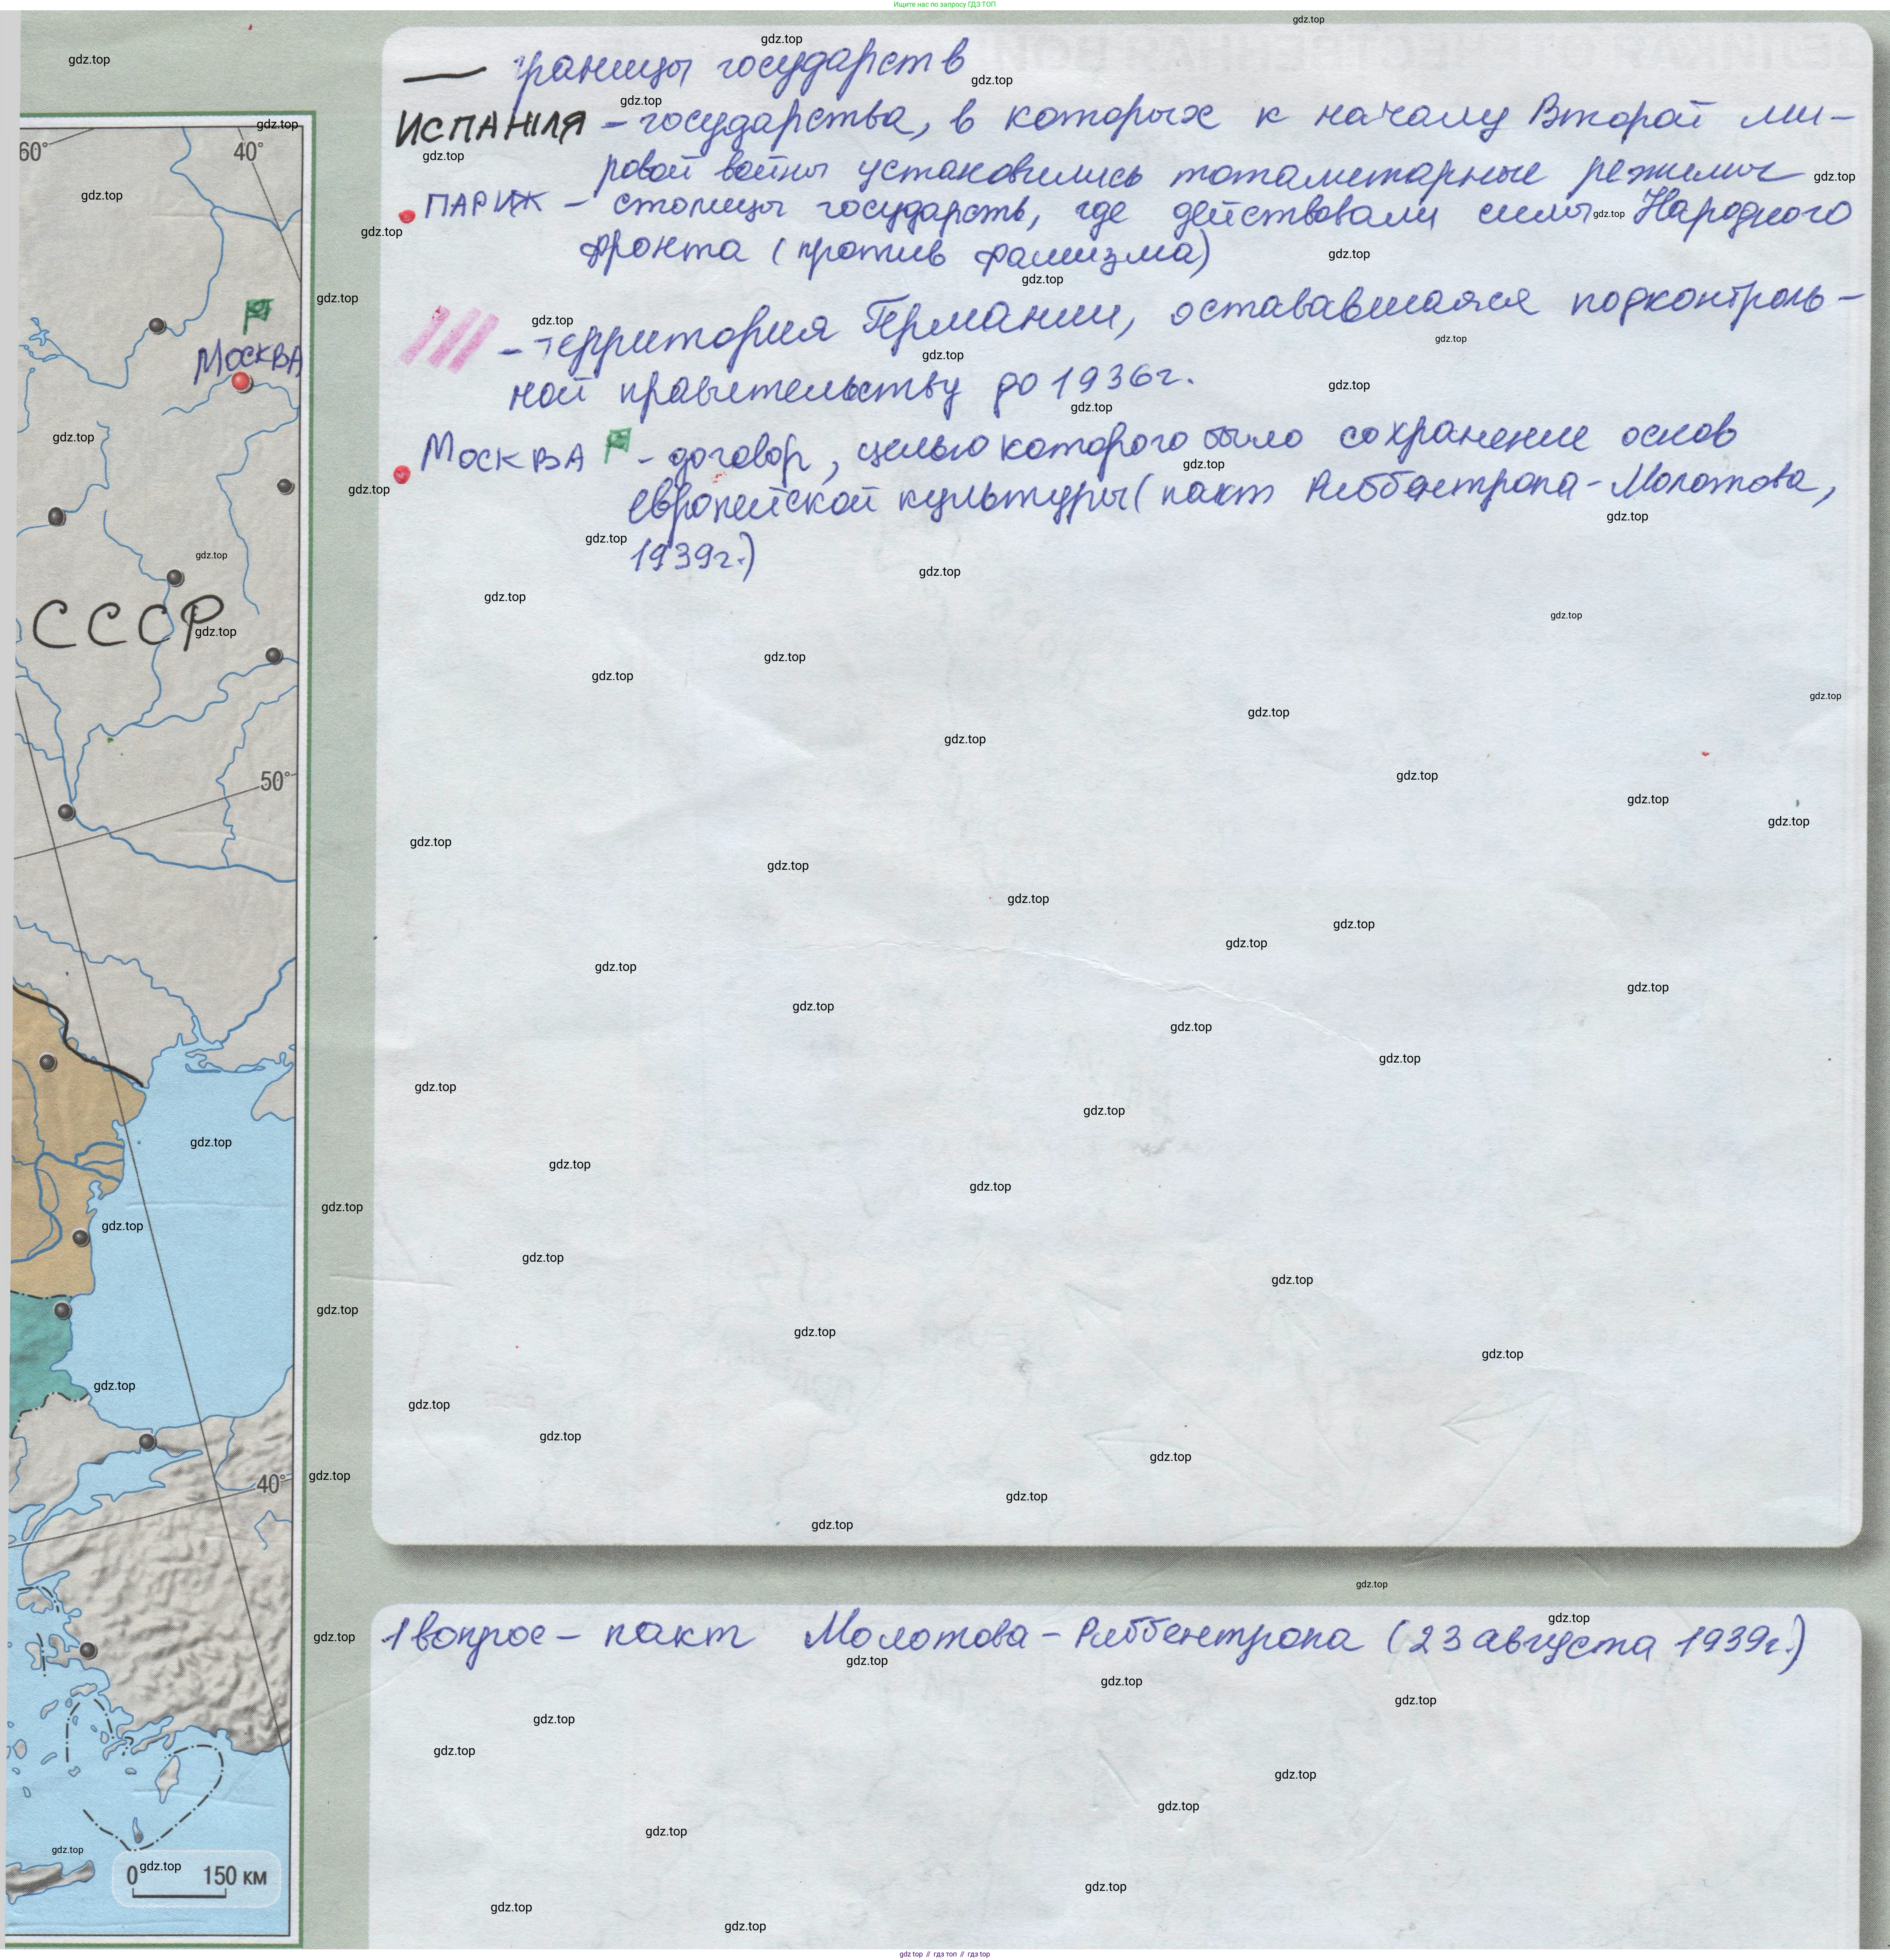 Ищите нас по запросу ГДЗ ТОП
границы государств
ИСПАНИЯ – государства, в которых к началу Второй ми-
ровой войны установились тоталитарные режимы
ПАРИЖ – столицы государств, где действовали силы Народного
фронта (против фашизма)
– территория Германии, остававшаяся подконтроль-
ной правительству до 1936г.
МОСКВА – договор, целью которого было сохранение основ
европейской культуры (пакт Риббентропа-Молотова,
1939г.)
60°
40°
МОСКВА
СССР
50°
40°
0 150 км
1 вопрос – пакт Молотова – Риббентропа (23 августа 1939г.)
gdz.top
gdz top // гдз топ // gdz top